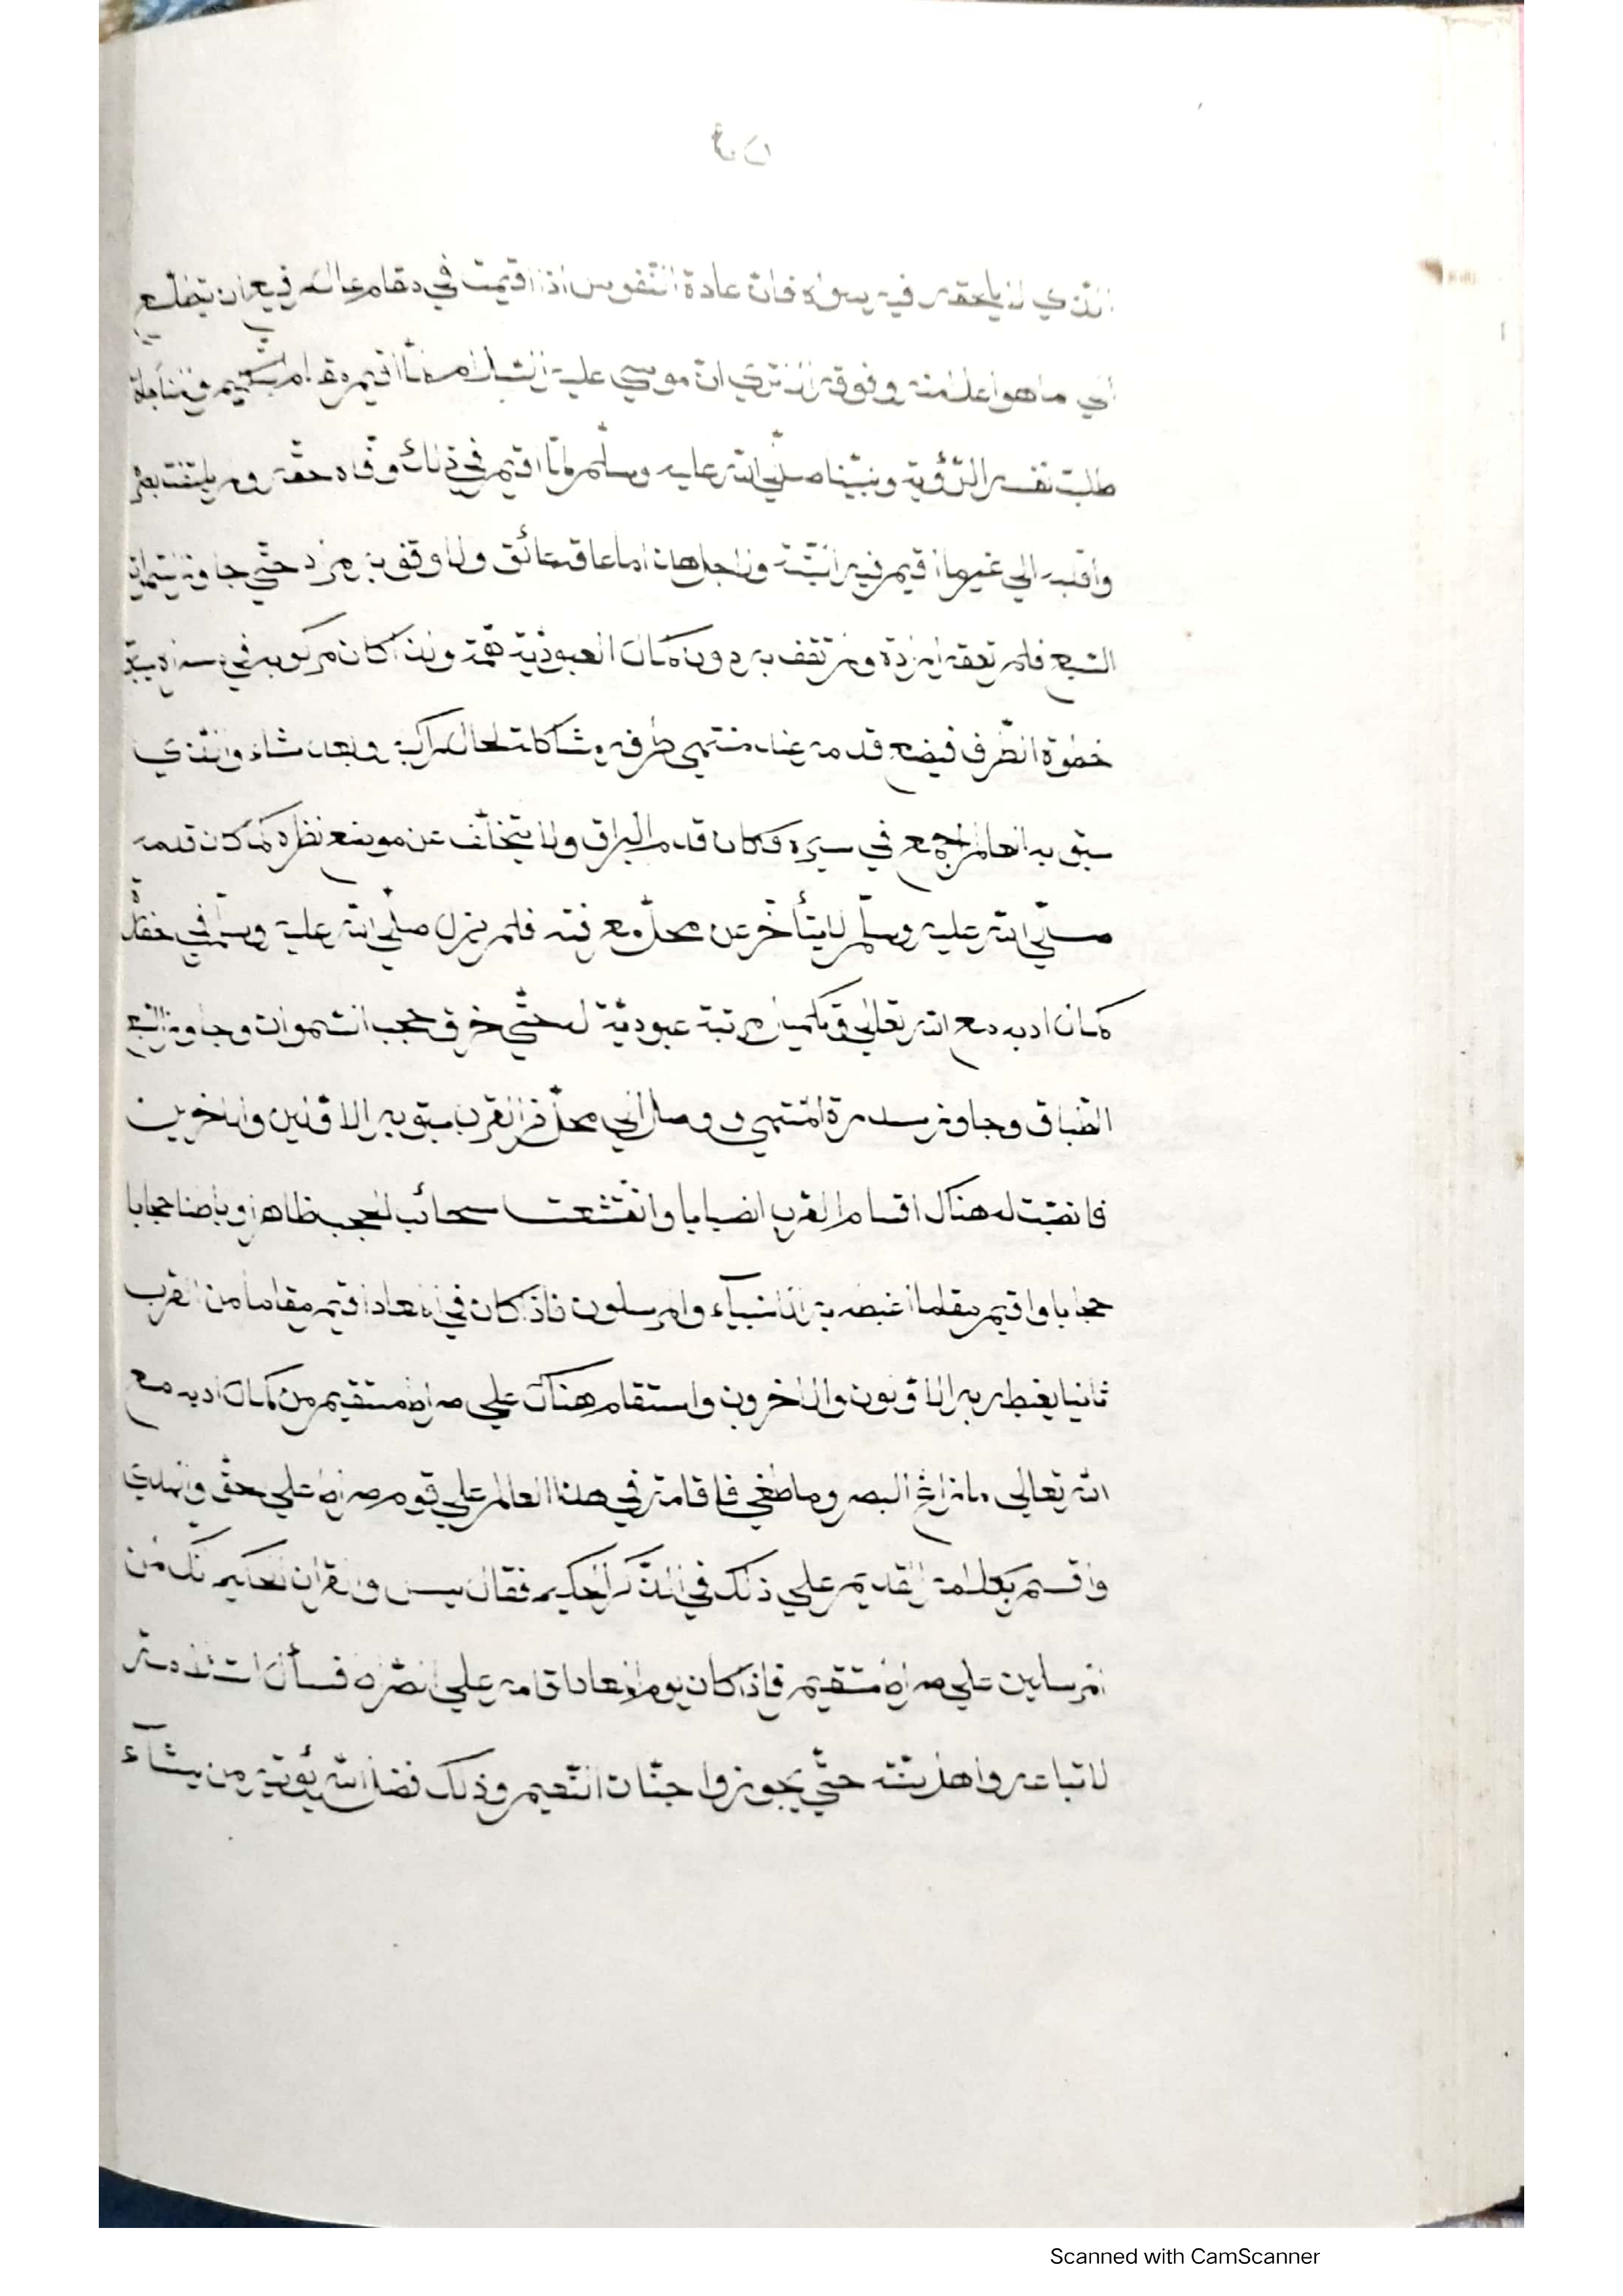 الذي لا يلحقه فيه سواه فان عادة النفوس اذا اقيمت في مقام عال رفيع ان يتطلع
الي ما هو اعلا منه وفوقه الا تري ان موسي عليه السلام لما اقيم مقام التكليم والمناجاة
طلبت نفسه الرؤية ونبينا صلي الله عليه وسلم لما اقيم في ذلك وفاه حقه ولم يلتفت بصره
واقلبه الي غير ما اقيم فيه البتة ولاجل هذا ما عاقه عائق ولا وقف به مراد حتي جاوز السموات
السبع فلم تعقه ارادة ولم تقف به دون كمال العبودية همة ولذا كان مركوبه في مسراه يسبق
خطوة الطرف فيضع قدمه عند منتهي طرفه مشاكلة لحال راكبه وبعد شاء والذي
سبق به العالم اجمع في سيره فكان قدم البراق ولا يتخلف عن موضع نظره كما كان قدمه
صلي الله عليه وسلم لا يتأخر عن محل معرفته فلم يزل صلي الله عليه وسلم في خفارة
كمال ادبه مع الله تعالي وتكميل مرتبة عبودية له حتي خرق حجب السموات وجاوز السبع
الطباق وجاوز سدرة المنتهي ووصل الي محل من القرب سبق به الاولين والاخرين
فانصبت له هناك اقسام القرب انصبابا وانقشعت سحائب الحجب ظاهرا وباطنا حجابا
حجابا واقيم مقاما اغبطه به الانبياء والمرسلون فاذا كان في المعاد اقيم مقاما من القرب
ثانيا يغبطه به الاولون والاخرون واستقام هناك علي صراط مستقيم من كمال ادبه مع
الله تعالي ما زاغ البصر وما طغي فاقامه في هذا العالم علي قوم صراط علي حق والهدي
واقسم بكلامه القديم علي ذلك في الذكر الحكيم فقال يس والقران الحكيم انك لمن
المرسلين علي صراط مستقيم فاذا كان يوم المعاد اقامه علي الصراط فسأل السلامة
لاتباعه واهل سنته حتي يجوزوا جنات النعيم وذلك فضل الله يؤتيه من يشآء